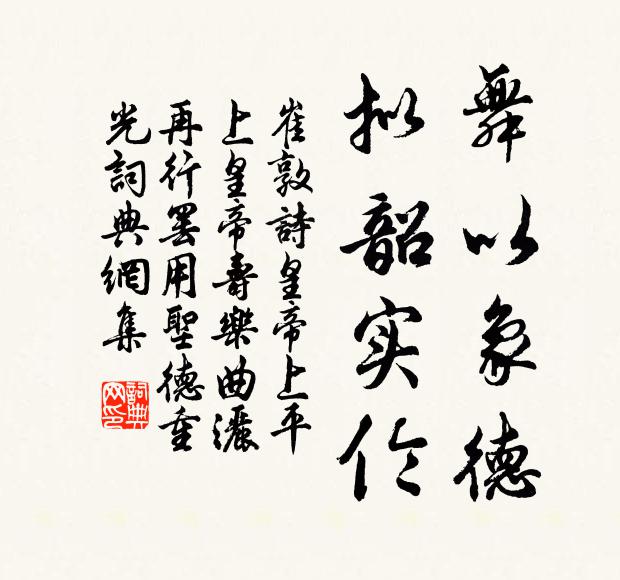 舞以象德
拟韶实伦
崔敦詩皇帝上平
上皇帝壽樂曲灑
再行罢用聖德重
光詞典網集
詞典
网印